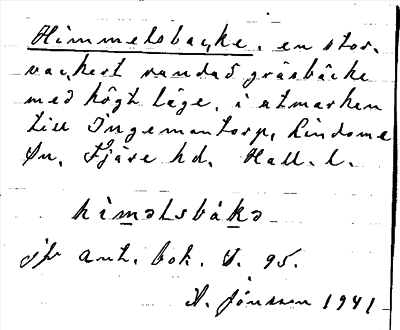 Himmelsbacke, en stor,
vackert rundad gräsbacke
med högt läge, i utmarken
till Ingemantorp, Lindome
sn, Fjäre hd. Hall. l.
himəlsbákə
jfr ant. bok. S. 95.
A. Jönsson 1941